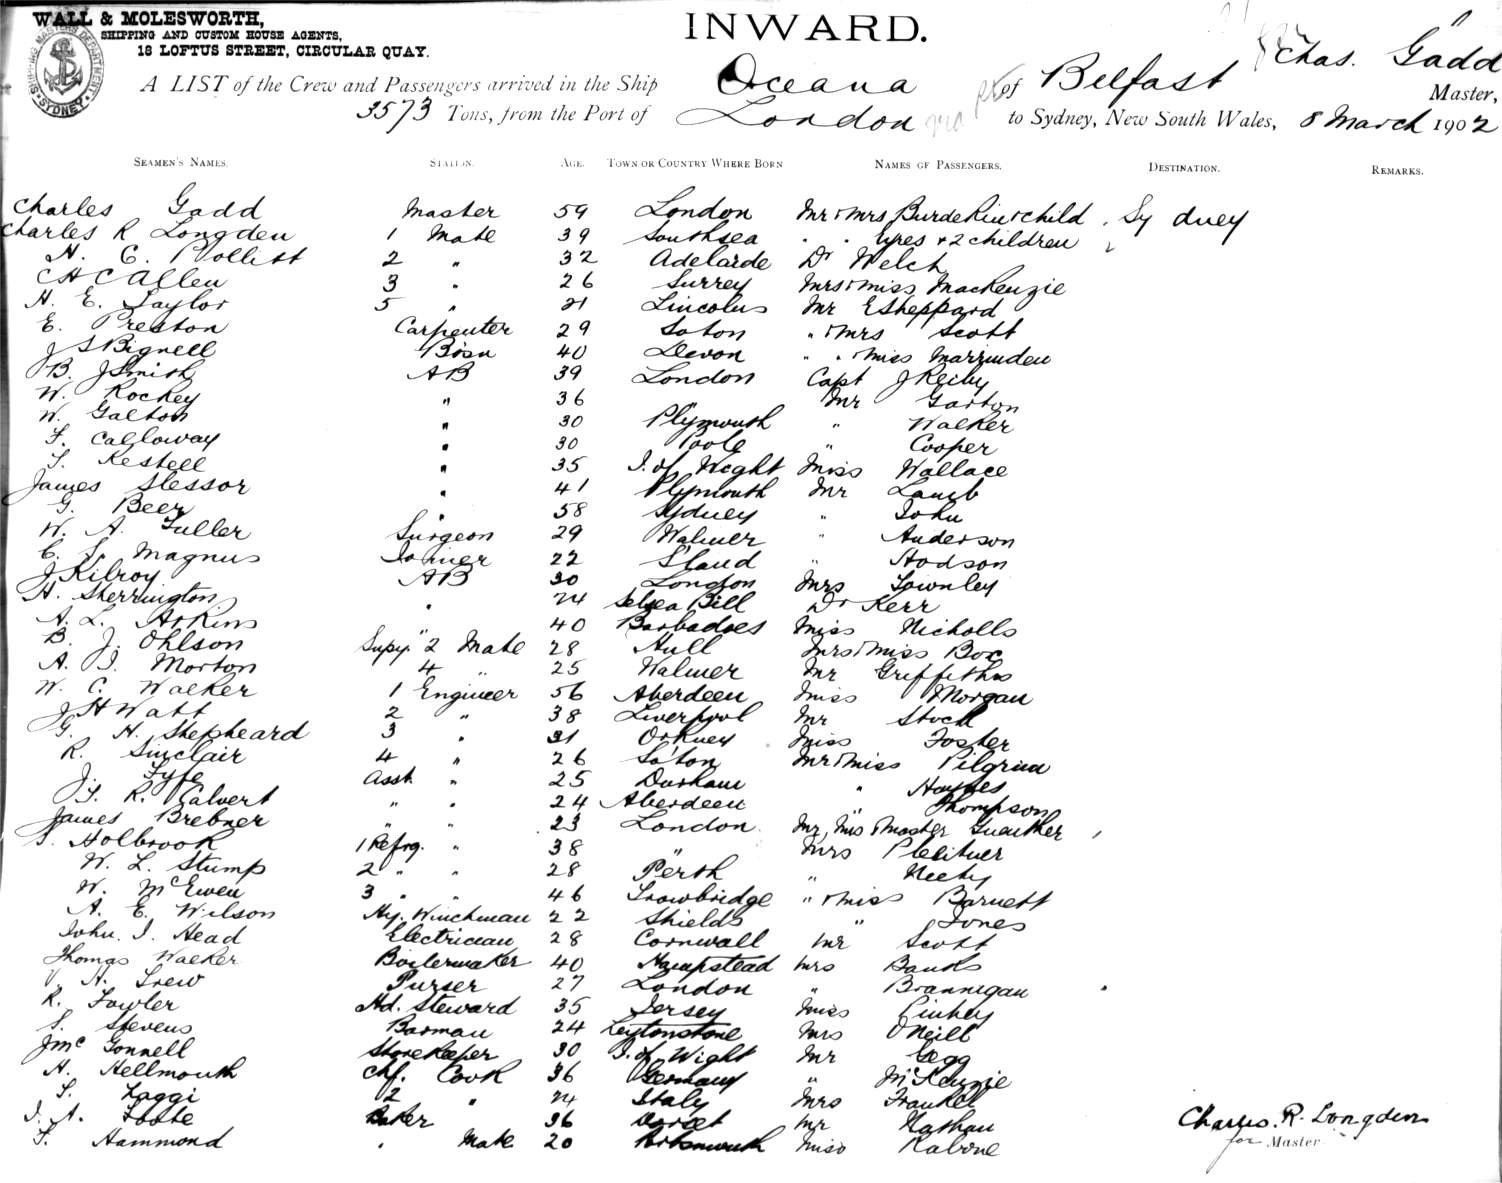 WALL & MOLESWORTH,
SHIPPING AND CUSTOM HOUSE AGENTS,
18 LOFTUS STREET, CIRCULAR QUAY.
SHIPPING MASTERS DEPARTMENT SYDNEY
INWARD.
A LIST of the Crew and Passengers arrived in the Ship Oceana of Belfast Chas. Gadd Master,
3573 Tons, from the Port of London to Sydney, New South Wales, 8 March 1902
SEAMEN'S NAMES. STATION. AGE. TOWN OR COUNTRY WHERE BORN NAMES OF PASSENGERS. DESTINATION. REMARKS.
Charles Gadd Master 59 London Mr & Mrs Burdekin & child Sydney
Charles R Longden 1 Mate 39 Southsea " " Eyres & 2 children
H. C. 2 " 32 Adelaide Dr Welch
C H C Allen 3 " 26 Surrey Mrs & Miss MacKenzie
H. E. Taylor 5 " 21 Lincolns Mr E Sheppard
E. Preston Carpenter 29 Soton " & Mrs Scott
J S Bignell Bosn 40 Devon " " & Miss
B. J Smith AB 39 London Capt J Reiby
W. Rockey " 36 Mr Garton
W. Galton " 30 Plymouth " Walker
F. Calloway " 30 Poole " Cooper
T. Kestell " 35 I. of Wight Miss Wallace
James Slessor " 41 Plymouth Mr Lamb
G. Beer " 58 Sydney " John
W. A. Fuller Surgeon 29 Walmer " Anderson
C. S. Magnus Joiner 22 S'land " Hodson
J Kilroy AB 30 London Mrs Townley
H. Sherrington " 24 Selsea Bill Dr Kerr
A. L. Atkins " 40 Barbadoes Miss Nicholls
B. J. Ohlson Supy 2 Mate 28 Hull Mrs & Miss Box
A. J. Morton 4 " 25 Walmer Mr Griffiths
W. C. Walker 1 Engineer 56 Aberdeen Miss Morgan
J H Watt 2 " 38 Liverpool Mr Stock
G. H. Shepheard 3 " 31 Orkney Miss Foster
R. Sinclair 4 " 26 So'ton Mr & Miss Pilgrim
J. Fyfe Asst " 25 Durham " Haynes
T. R. Calvert " " 24 Aberdeen " Thompson
James Brebner " " 23 London Mr, Mrs & Master Guenther
T. Holbrook 1 Refrg. " 38 " Mrs
W. L. Stump 2 " " 28 Perth "
W. McEwen 3 " " 46 Trowbridge " & Miss Barnett
A. E. Wilson Hy. Winchman 22 Shields " Jones
John. J. Head Electrician 28 Cornwall Mr Scott
Thomas Walker Boilermaker 40 Hampstead Mrs Banks
V. A. Trew Purser 27 London " Brannigan
R. Fowler Hd. Steward 35 Jersey Miss
S. Stevens Barman 24 Leytonstone Mrs O'Neill
J Mc Gonnell Storekeeper 30 I. of Wight Mr Legg
H. Hellmouth Chf. Cook 36 Germany " McKenzie
S. Zaggi 2 " 24 Italy Mrs Frankel
J. A. Foote Baker 36 Dorset Mr Nathan
F. Hammond " Mate 20 Portsmouth Miss Rabone
Charles. R. Longden
for Master